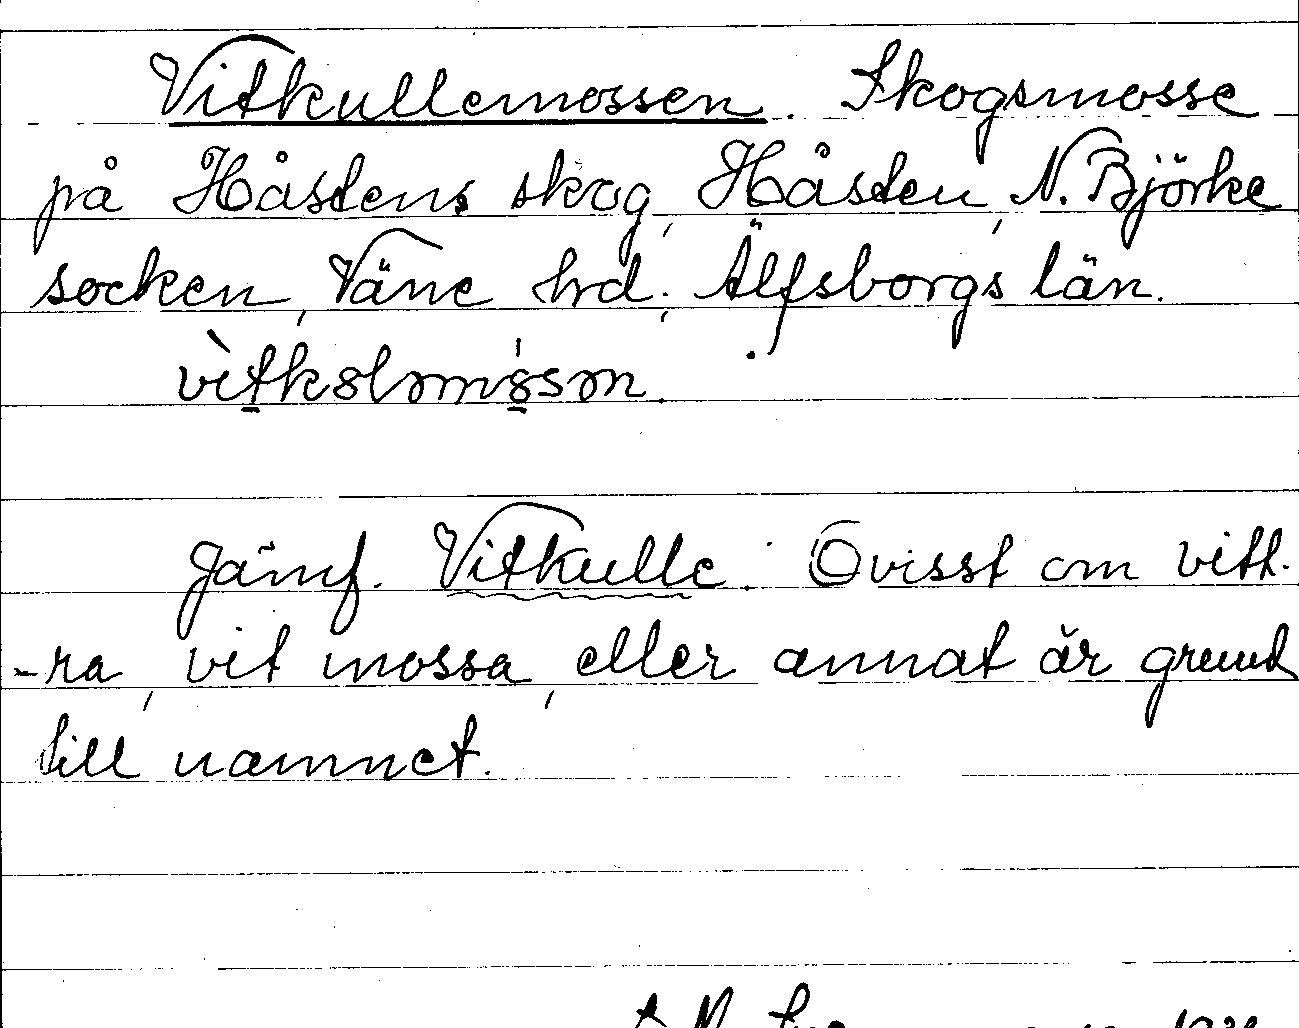 Vitkullemossen. Skogsmosse
på Håstens skog, Håsten, N. Björke
socken, Väne hrd, Älfsborgs län.
Jämf. Vitkulle. Ovisst om vitt-
-ra, vit mossa, eller annat är grund
till namnet.